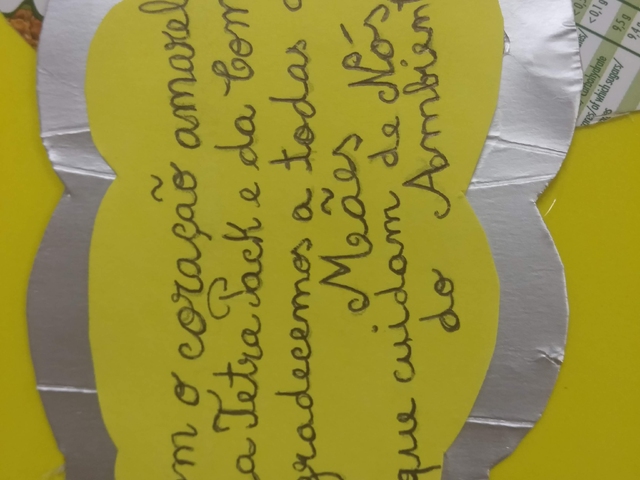 m o coração amarel
a Tetra Pack e da Com
gradecemos a todas
Mães
que cuidam de Nós
do Ambien
carbohydrate
of which sugars/
<0,1 g
9,5 g